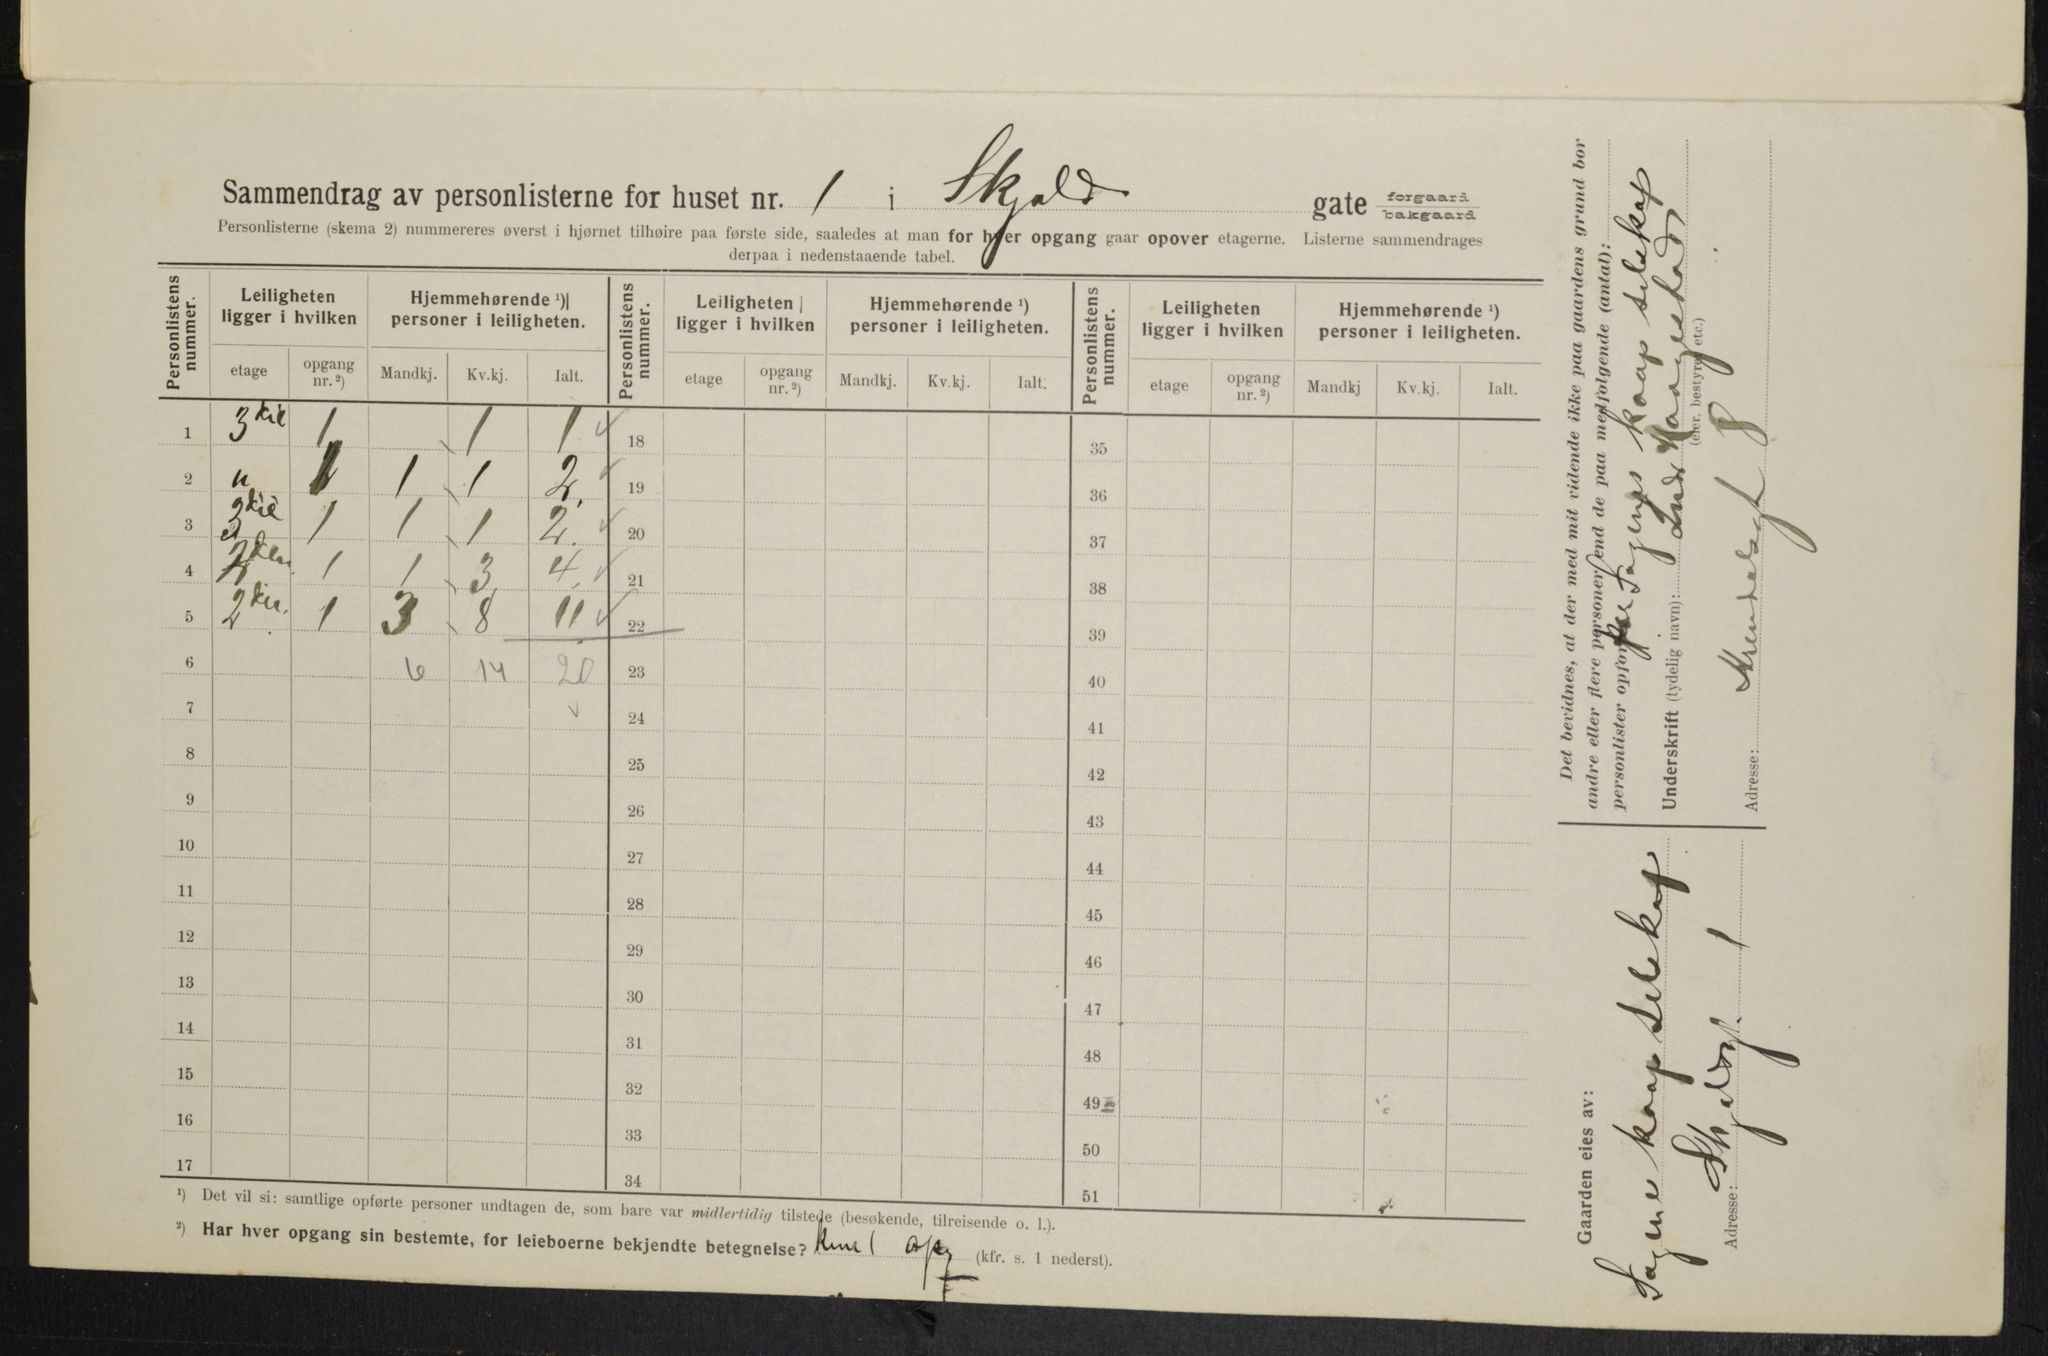 Sammendrag av personlisterne for huset nr. 1 i Skjolds gate forgaard bakgaard
Personlisterne (skema 2) nummereres øverst i hjørnet tilhøire paa første side, saaledes at man for hver opgang gaar opover etagerne. Listerne sammendrages
derpaa i nedenstaaende tabel.
Personlistens nummer. Leiligheten ligger i hvilken Hjemmehørende ¹) personer i leiligheten. Personlistens nummer. Leiligheten ligger i hvilken Hjemmehørende ¹) personer i leiligheten. Personlistens nummer. Leiligheten ligger i hvilken Hjemmehørende ¹) personer i leiligheten.
etage opgang nr. ²) Mandkj. Kv.kj. Ialt. etage opgang nr. ²) Mandkj. Kv.kj. Ialt. etage opgang nr. ²) Mandkj Kv.kj. Ialt.
1 3 1 1 1 18 35
2 " 1 1 1 2 19 36
3 1 1 1 2 20 37
4 1 1 3 4 21 38
5 2 1 3 8 11 22 39
6 6 14 20 23 40
7 24 41
8 25 42
9 26 43
10 27 44
11 28 45
12 29 46
13 30 47
14 31 48
15 32 49
16 33 50
17 34 51
¹) Det vil si: samtlige opførte personer undtagen de, som bare var midlertidig tilstede (besøkende, tilreisende o. l.).
²) Har hver opgang sin bestemte, for leieboerne bekjendte betegnelse? kun 1 opg (kfr. s. 1 nederst).
Det bevidnes, at der med mit vidende ikke paa gaardens grund bor
andre eller flere personer end de paa medfølgende (antal):
personlister opfør
Sagenes koop selskap
Underskrift (tydelig navn):
(eier, bestyrer etc.)
Adresse: 8
Gaarden eies av:
Sagene koop selskap
Adresse: Skjoldsgt. 1